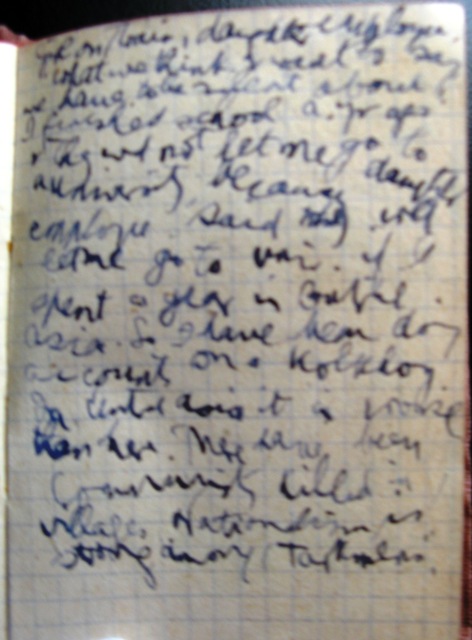 daughter employee.
what we think & what we say
we have to be silent about.
I finished school a yr ago
& they wd not let me go to
university because daughter
employee. Said they will
let me go to univ. if I
spent a year in Central
Asia. So I have been doing
accounts on a Kolkhoz.
In Central Asia it is worse
than here. There have been
Communists killed in
villages. Nationalism is
strong among